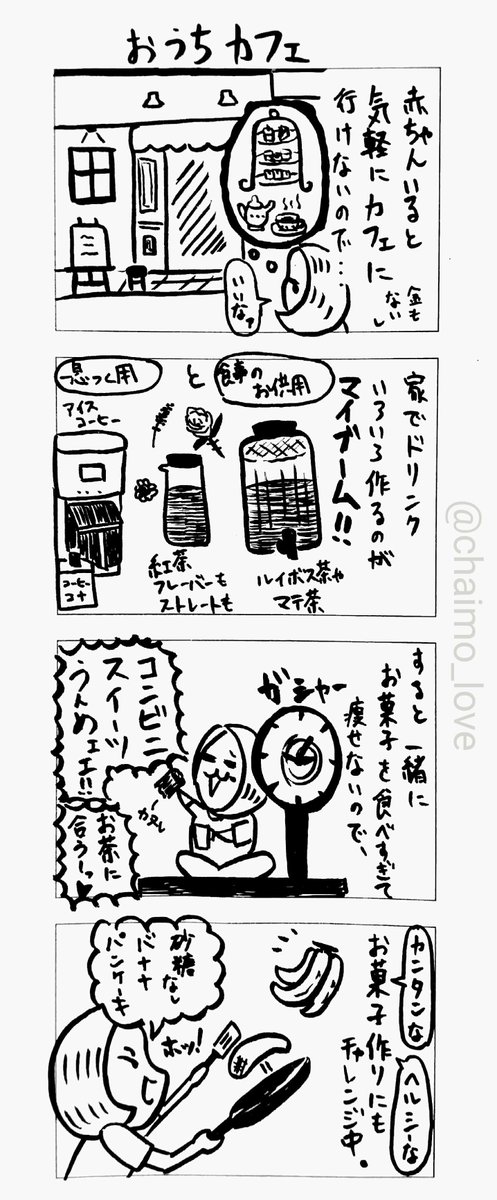 おうちカフェ
赤ちゃんいると
気軽にカフェに
行けないので…
金も
ないし
いいなァ
家でドリンク
いろいろ作るのが
マイブーム!!
食事の
お供用
と
息つく用
アイス
コーヒー
コーヒー
コナ
紅茶
フレーバーも
ストレートも
ルイボス茶や
マテ茶
すると一緒に
お菓子を食べすぎて
痩せないので、
ガシャー
コンビニ
スイーツ
うんめェエ!!
カヌレ
お茶に
合うーっ
カンタンな
ヘルシーな
お菓子作りにも
チャレンジ中。
砂糖
なし
バナナ
パンケーキ
ホッ!
@chaimo_love